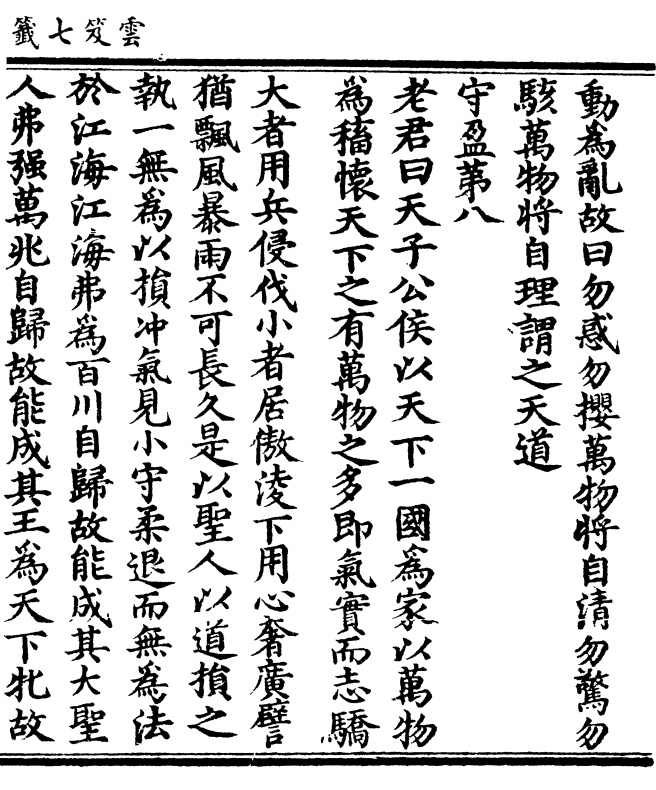 雲笈七籤
動為亂故曰勿惑勿攖萬物將自清勿驚勿
駭萬物將自理謂之天道
守盈第八
老君曰天子公侯以天下一國為家以萬物
為稸懷天下之有萬物之多即氣實而志驕
大者用兵侵伐小者居傲淩下用心奢廣譬
猶飄風暴雨不可長久是以聖人以道損之
執一無為以損冲氣見小守柔退而無為法
於江海江海弗為百川自歸故能成其大聖
人弗强萬兆自歸故能成其王為天下牝故